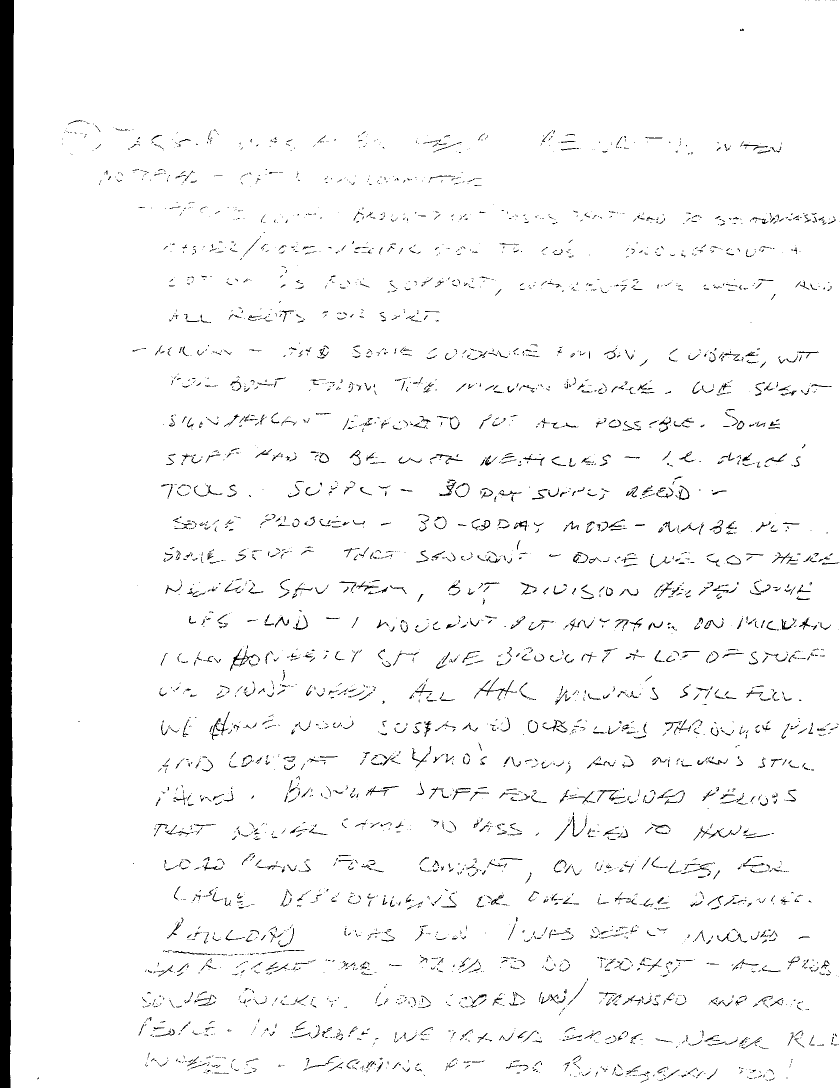 WAS A BIG HELP REWRITING WHEN
NOTIFIED - ON COMMITTEE
BROUGHT OUT THAT HAD TO BE ADDRESSED
TO CO'S. BROUGHT OUT A
LOT OF ?'S FOR SUPPORT, WHEREVER WE WENT, AND
ALL REQ'TS FOR SPRT.
- MILVAN - HAD SOME GUIDANCE FM BN, BDE, WT
FOR BOAT FROM THE MILVAN PEOPLE. WE SPENT
SIGNIFICANT EFFORT TO PUT ALL POSSIBLE. SOME
STUFF HAD TO BE WITH VEHICLES - I.E. MECH'S
TOOLS. SUPPLY - 30 DAY SUPPLY REQ'D -
SOME PROBLEM - 30-60 DAY MODE - MAYBE PUT
SOME STUFF THAT SHOULDN'T - ONCE WE GOT HERE
NEVER SAW THEM, BUT DIVISION HELPED SOME
- I WOULDN'T PUT ANYTHING ON MILVAN
I CAN HONESTLY SAY WE BROUGHT A LOT OF STUFF
WE DIDN'T NEED. ALL HHC MILVAN'S STILL FULL.
WE HAVE NOW SUSTAINED OURSELVES THROUGH PREP
AND COMBAT FOR 4 MO'S NOW, AND MILVAN'S STILL
PACKED. BROUGHT STUFF FOR EXTENDED PERIODS
THAT NEVER CAME TO PASS. NEED TO HAVE
LOAD PLANS FOR COMBAT, ON VEHICLES, FOR
LARGE DEPLOYMENTS OR OVER LARGE DISTANCES.
RAILLOAD WAS FUN. I WAS DEEPLY INVOLVED -
HAD A GREAT TIME - TRIED TO DO TOO FAST - ALL PROB
SOLVED QUICKLY. GOOD COORD W/ TRANSPO AND RAIL
PEOPLE. IN EUROPE, WE TRAINED EUROPE - NEVER RLD
WHEELS - LEARNING PT FOR BUNDESBAHN TOO!